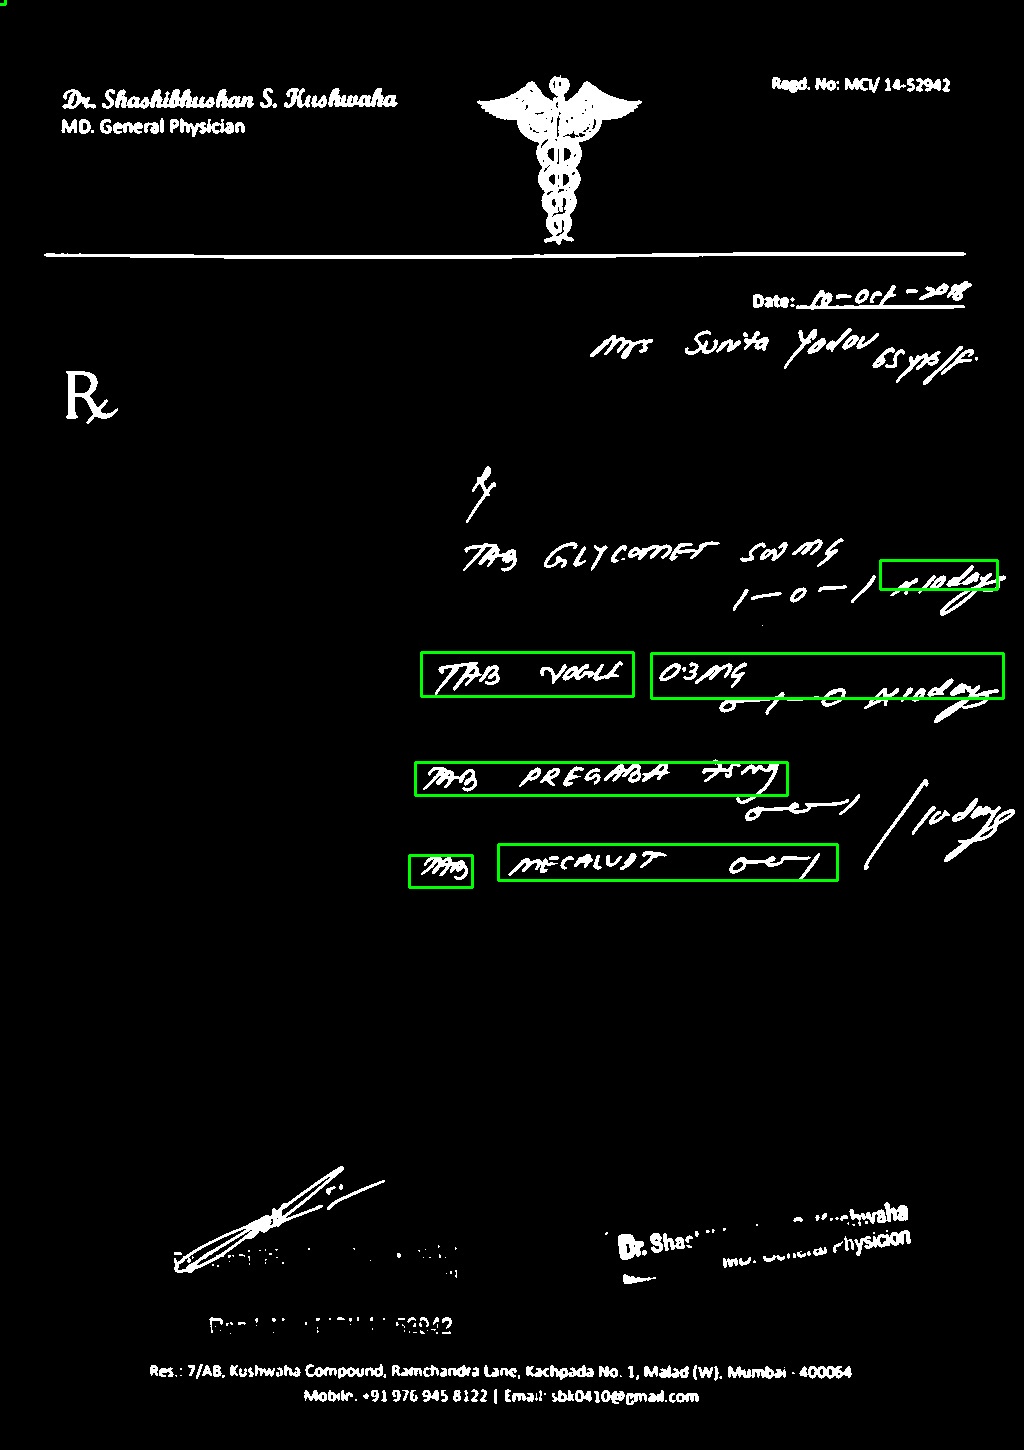 Dr. Shashibhushan S. Kushwaha
MD. General Physician
Regd. No: MCI/ 14-52942
Date: 10-Oct-2018
Mrs Sunita Yadav 65 yrs/F.
Rx
Rx
TAB GLYCOMET 500 MG
1-0-1 x 10 days
TAB VOGLI 0.3 MG
0-1-0 x 10 days
TAB PREGABA 75 mg
0-0-1
10 days
TAB 0-0-1
Dr. Kushwaha
MD. General Physician
52942
Res.: 7/AB, Kushwaha Compound, Ramchandra Lane, Kachpada No. 1, Malad (W), Mumbai - 400064
Mobile: +91 976 945 8122 | Email: sbk0410@gmail.com